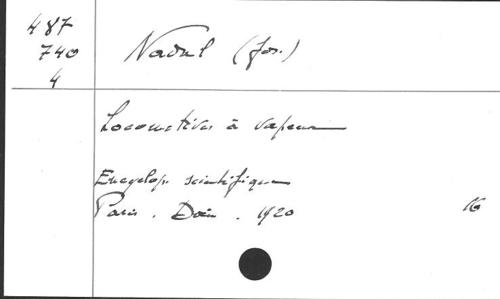 487
740
4
Nadal (Jos.)
Locomotives à vapeur
Encyclop. scientifique
Paris. Doin. 1920
16